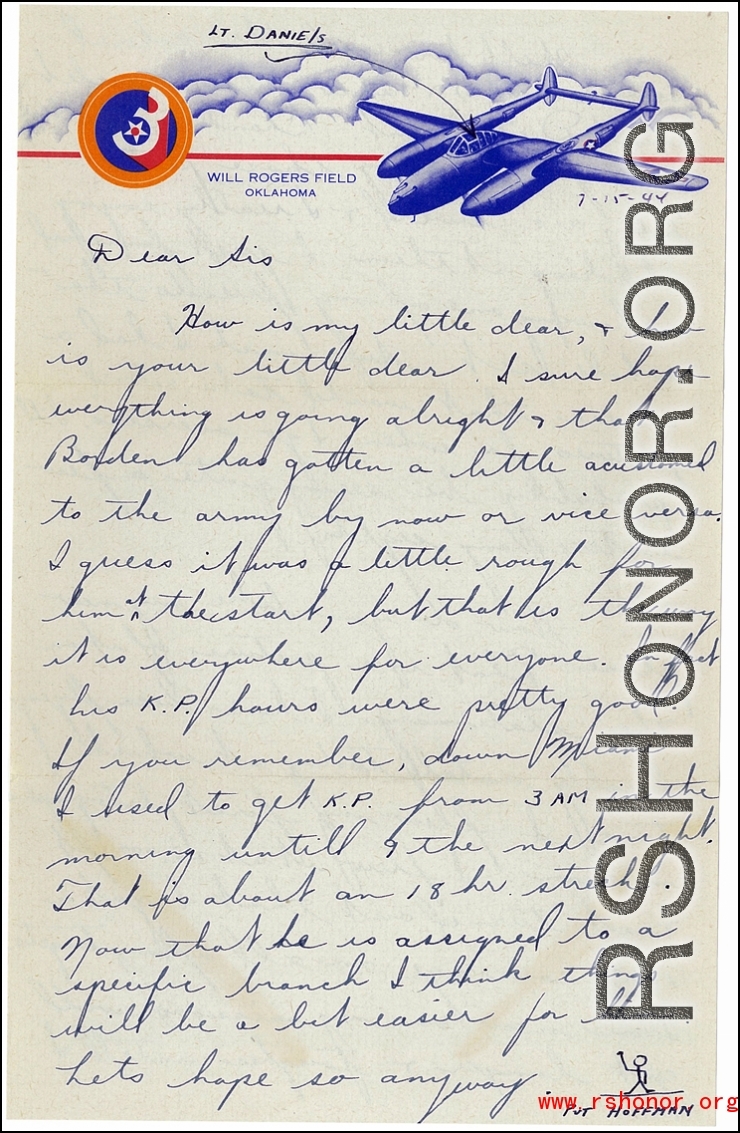 LT. DANIELS
3
WILL ROGERS FIELD
OKLAHOMA
7-15-44
Dear Sis
How is my little dear, + how
is your little dear. I sure hope
everything is going alright & that
Borden has gotten a little acustomed
to the army by now or vice versa.
I guess it was a little rough for
him at the start, but that is the way
it is everywhere for everyone. In fact
his K.P. hours were pretty good.
If you remember, down Miami
I used to get K.P. from 3 AM in the
morning untill 9 the next night.
That is about an 18 hr. strech.
Now that he is assigned to a
specific branch I think things
will be a bit easier for
Lets hope so anyway.
PVT HOFFMAN
RSHONOR.ORG
www.rshonor.org